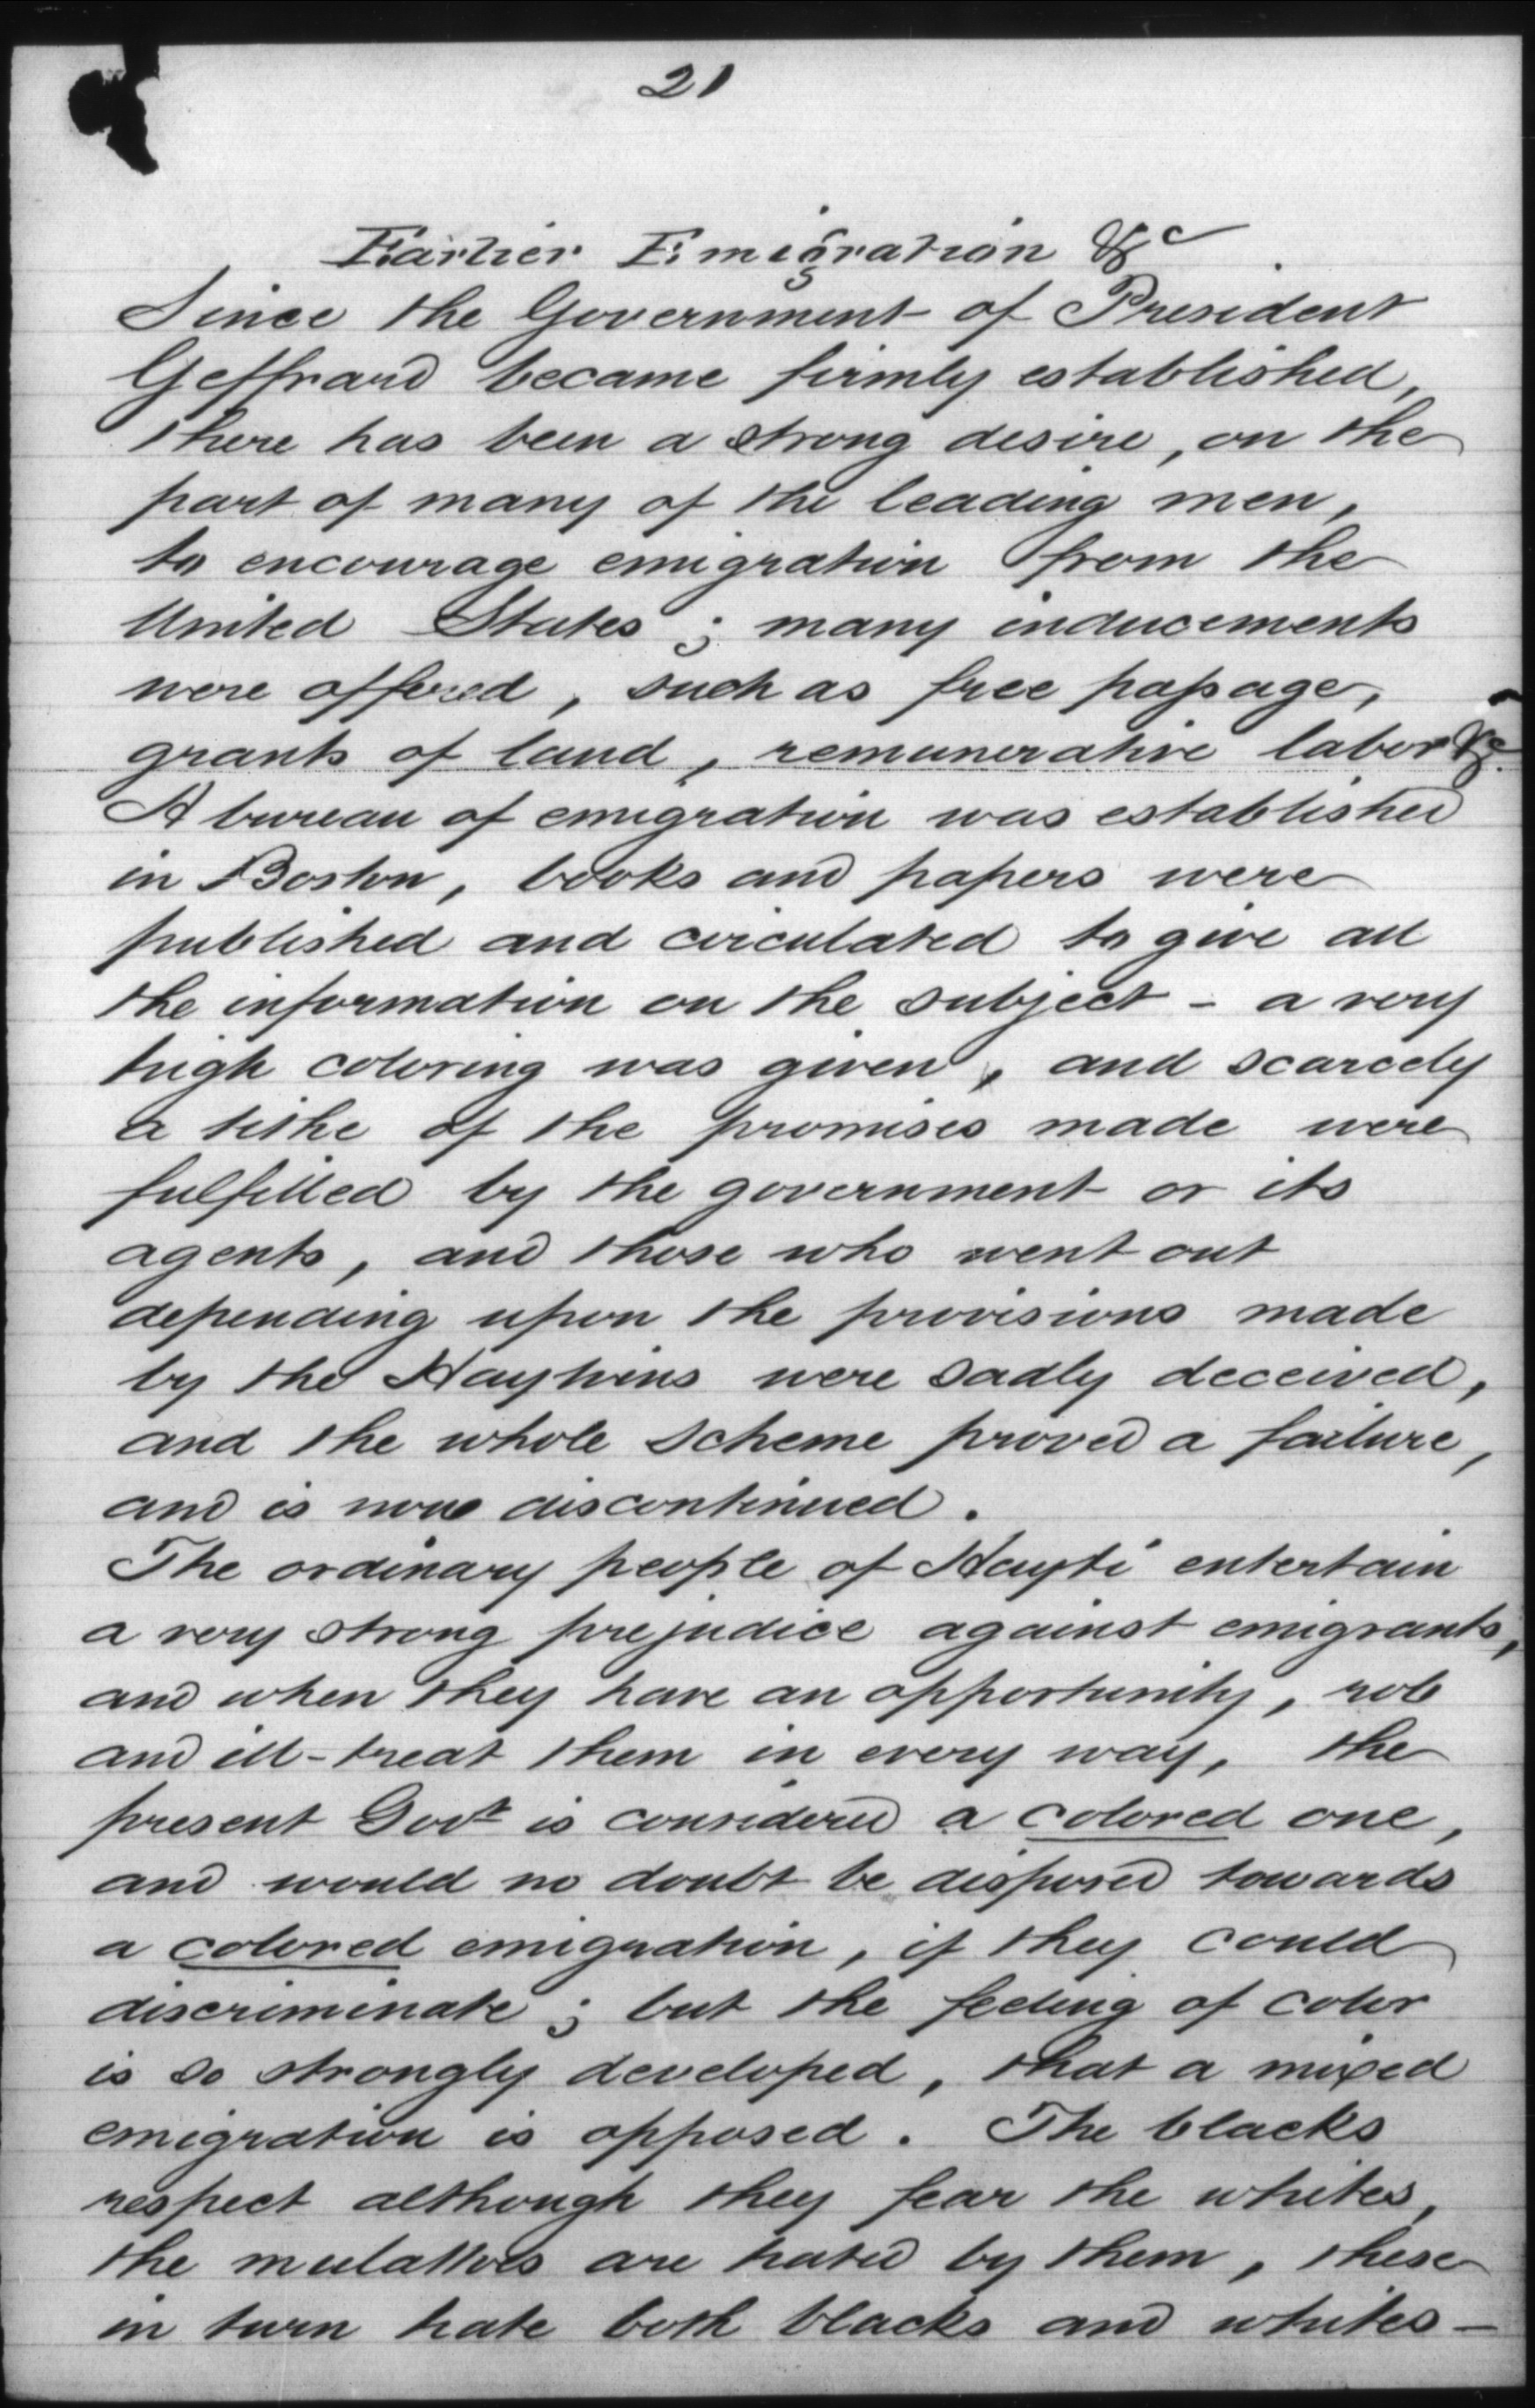 21
Earlier Emigration &c
Since the Government of President
Geffrard became firmly established,
there has been a strong desire, on the
part of many of the leading men,
to encourage emigration from the
United States ; many inducements
were offered, such as free passage,
grants of land, remunerative labor &c.
A bureau of emigration was established
in Boston, books and papers were
published and circulated to give all
the information on the subject - a very
high coloring was given, and scarcely
a tithe of the promises made were
fulfilled by the government or its
agents, and those who went out
depending upon the provisions made
by the Haytiens were sadly deceived,
and the whole scheme proved a failure,
and is now discontinued.
The ordinary people of Hayti entertain
a very strong prejudice against emigrants,
and when they have an opportunity, rob
and ill-treat them in every way, the
present Govt is considered a colored one,
and would no doubt be disposed towards
a colored emigration, if they could
discriminate ; but the feeling of color
is so strongly developed, that a mixed
emigration is opposed. The blacks
respect although they fear the whites,
the mulattoes are hated by them, these
in turn hate both blacks and whites -